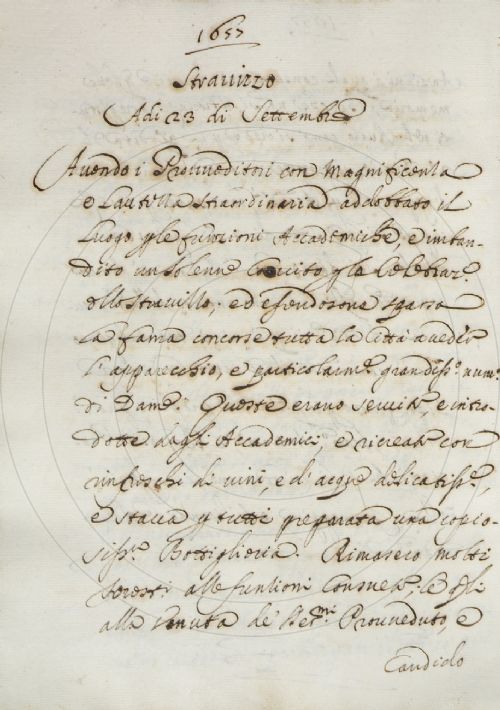 1657
Stravizzo
Adi 23 di Settembre
Avendo i Provveditori con Magnificenza
e Lautezza straordinaria addobbato il
Luogo p le funzioni Accademiche, e imban-
dito un solenne Convito p la Celebraz.
dello stravizzo, ed essendosene sparsa
la fama concorse tutta la Città a veder
l'apparecchio, e particolarm.e grandiss.o num.o
di Dame. Queste erano servite, e intro-
dotte dagli Accademici, e ricreate con
rinfreschi di vini, e d'acque delicatiss.e,
e stava p tutti preparata una copio-
siss.a Bottiglieria. Rimasero molti
alle funzioni Consuete, e
alla venuta de Ser.mi Provveduto, e
Candido